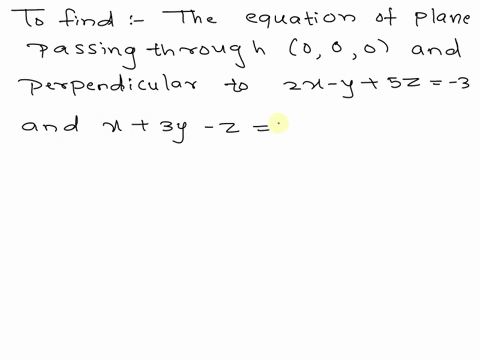 To find :- The equation of plane
passing through (0, 0, 0) and
perpendicular to 2x-y+5z=-3
and x+3y-z=